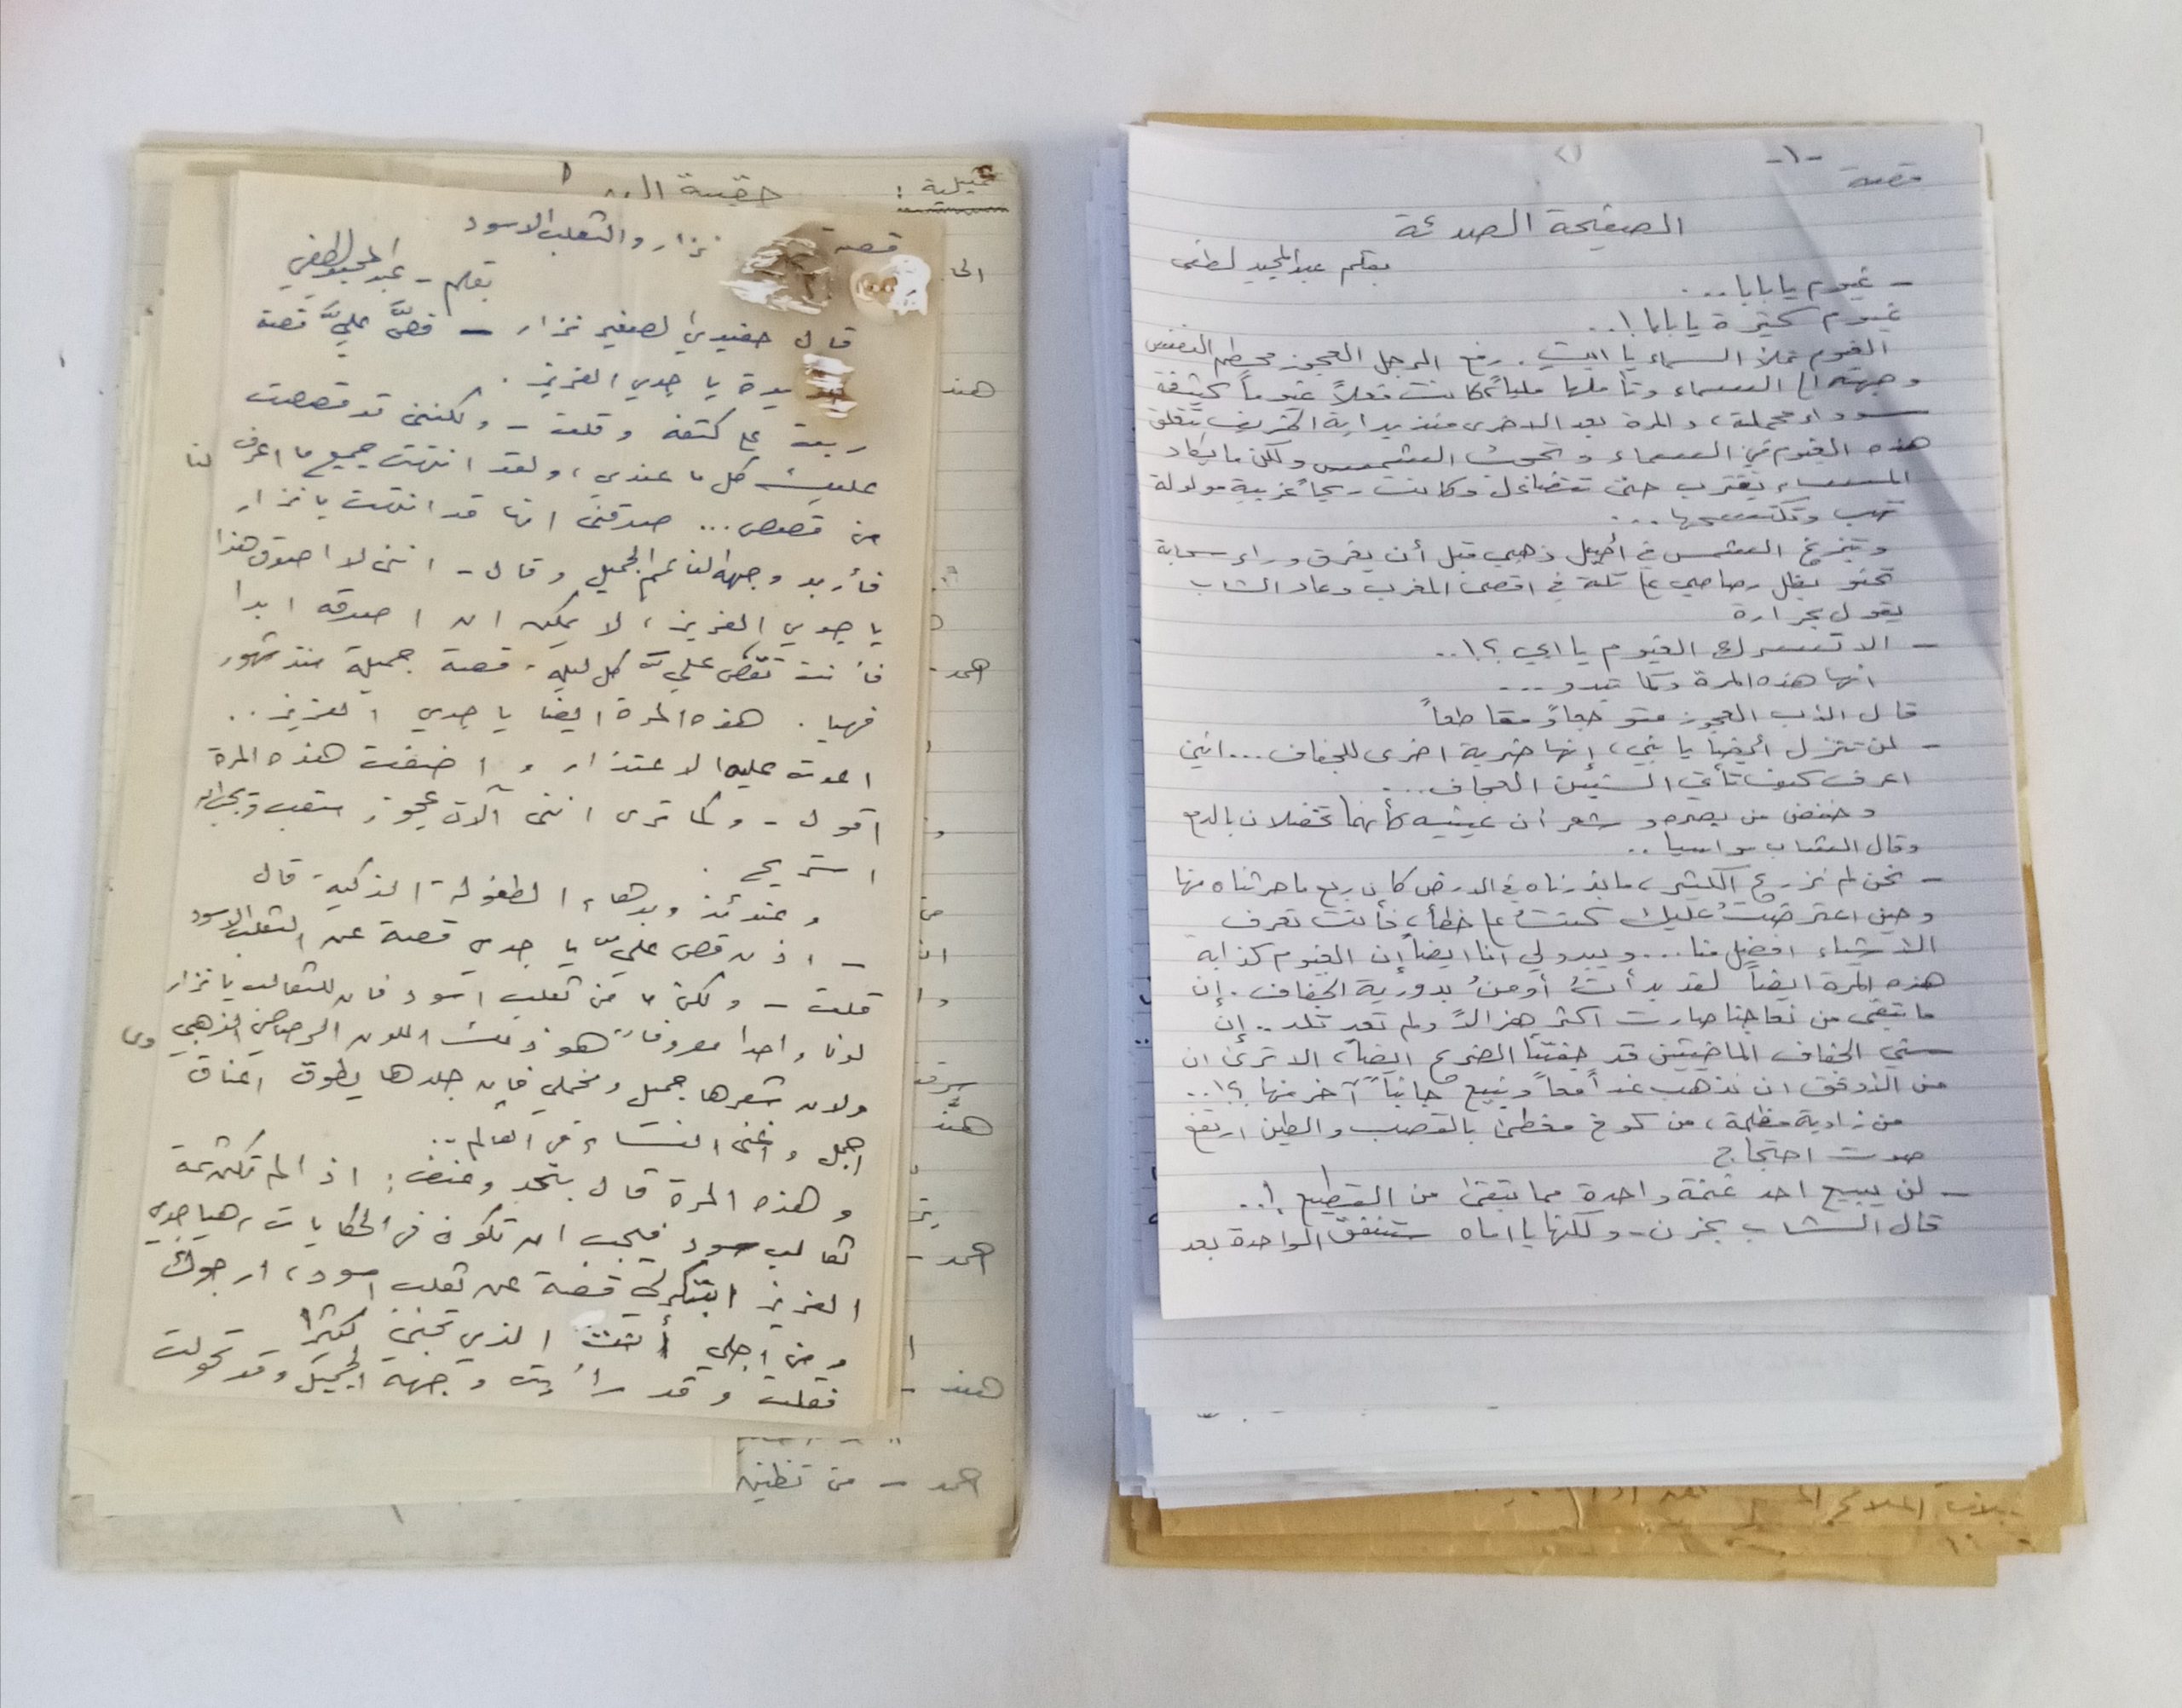 -١-
قصة
الصفيحة الصدئة
بقلم عبد المجيد لطفي
- غيوم يا بابا . . .
غيوم كثيرة يا بابا ! . .
الغيوم تملأ السماء يا ابتي . رفع الرجل العجوز محطم النفس
وجهه الى السماء وتأملها ملياً كانت فعلاً غيوماً كثيفة
سوداء محملة ، والمرة بعد الاخرى منذ بداية الخريف تتعلق
هذه الغيوم في السماء وتحجب الشمس ولكن ما يكاد
المساء يقترب حتى تتضاءل وكانت ريحاً غريبة مولولة
تهب وتكتسحها . . .
وتتمرغ الشمس في أصيل ذهبي قبل أن يغرق وراء سحابة
تحنو بظل رصاصي على تلة في اقصى المغرب وعاد الشاب
يقول بحرارة
- الا تسرك الغيوم يا ابي ؟ ! . .
انها هذه المرة وكما تبدو . . .
قال الأب العجوز متوجعاً مقاطعاً
- لن تنزل أيضاً يا بني ، إنها ضربة اخرى للجفاف . . . انني
اعرف كيف تأتي السنين العجاف . . .
وخفض من بصره وشعر أن عينيه كأنهما تخضلان بالدمع
وقال الشاب مواسيا . .
- نحن لم نزرع الكثير ، ما بذرناه في الارض كان ربع ما حرثناه منها
وحين اعترضتُ عليك كنتُ على خطأ ، فأنت تعرف
الأشياء افضل منا . . . ويبدو لي انا ايضاً إن الغيوم كذابة
هذه المرة ايضاً لقد بدأتُ أومنُ بدورية الجفاف . إن
ما تبقى من نعاجنا صارت اكثر هزالاً ولم تعد تلد . . إن
سني الجفاف الماضيتين قد جففتا الضرع ايضاً ، الا ترى ان
من الأوفق ان نذهب غداً معاً ونبيع جانباً آخر منها ؟ ! . .
من زاوية مظلمة ، من كوخ مغطى بالقصب والطين ارتفع
صوت احتجاج
- لن يبيع احد غنمة واحدة مما تبقى من القطيع ! . .
قال الشاب بحزن - ولكنها يا اماه ستنفق الواحدة بعد
تمثيلية :
حقيبة ال
قصة
نزار والثعلب الاسود
بقلم - عبد المجيد لطفي
قال حفيدي الصغير نزار - قصَّ عليَّ قصة
يدة يا جدي العزيز .
ربت على كتفه وقلت - ولكنني قد قصصت
عليك كل ما عندي ، ولقد انتهت جميع ما اعرف لنا
من قصص . . . صدقني انها قد انتهت يا نزار
فأربد وجهه الناعم الجميل وقال - انني لا اصدق هذا
يا جدي العزيز ، لا يمكن ان اصدقه ابدا
فأنت تقص عليَّ كل ليلة قصة جميلة منذ شهور
فهيا . هذه المرة ايضا يا جدي العزيز . .
اعدت عليه الاعتذار و اضفت هذه المرة
اقول - وكما ترى انني الآن عجوز متعب ويجب ان
استريح .
وعندئذ وبدهاء الطفولة الذكية قال
- اذن قص عليّ يا جدي قصة عن الثعلب الاسود
قلت - ولكن ما من ثعلب اسود فان للثعالب يا نزار
لونا واحدا معروفاً هو ذلك اللون الرصاصي الذهبي
ولان شعرها جميل ومخملي فان جلدها يطوق اعناق
اجمل واغنى النساء في العالم . .
وهذه المرة قال بتحد وعنف : اذا لم تكن ثمة
ثعالب سود فيجب ان تكون في الحكايات ، هيا جدي
العزيز ابتكر لي قصة عن ثعلب اسود ، ارجوك
ومن اجلي أنت الذي تحبني كثيرا
فقلت وقد رأيت وجهه الجميل وقد تحولت
هند
احمد -
هند
احمد -
هند -
احمد - من تنظيف